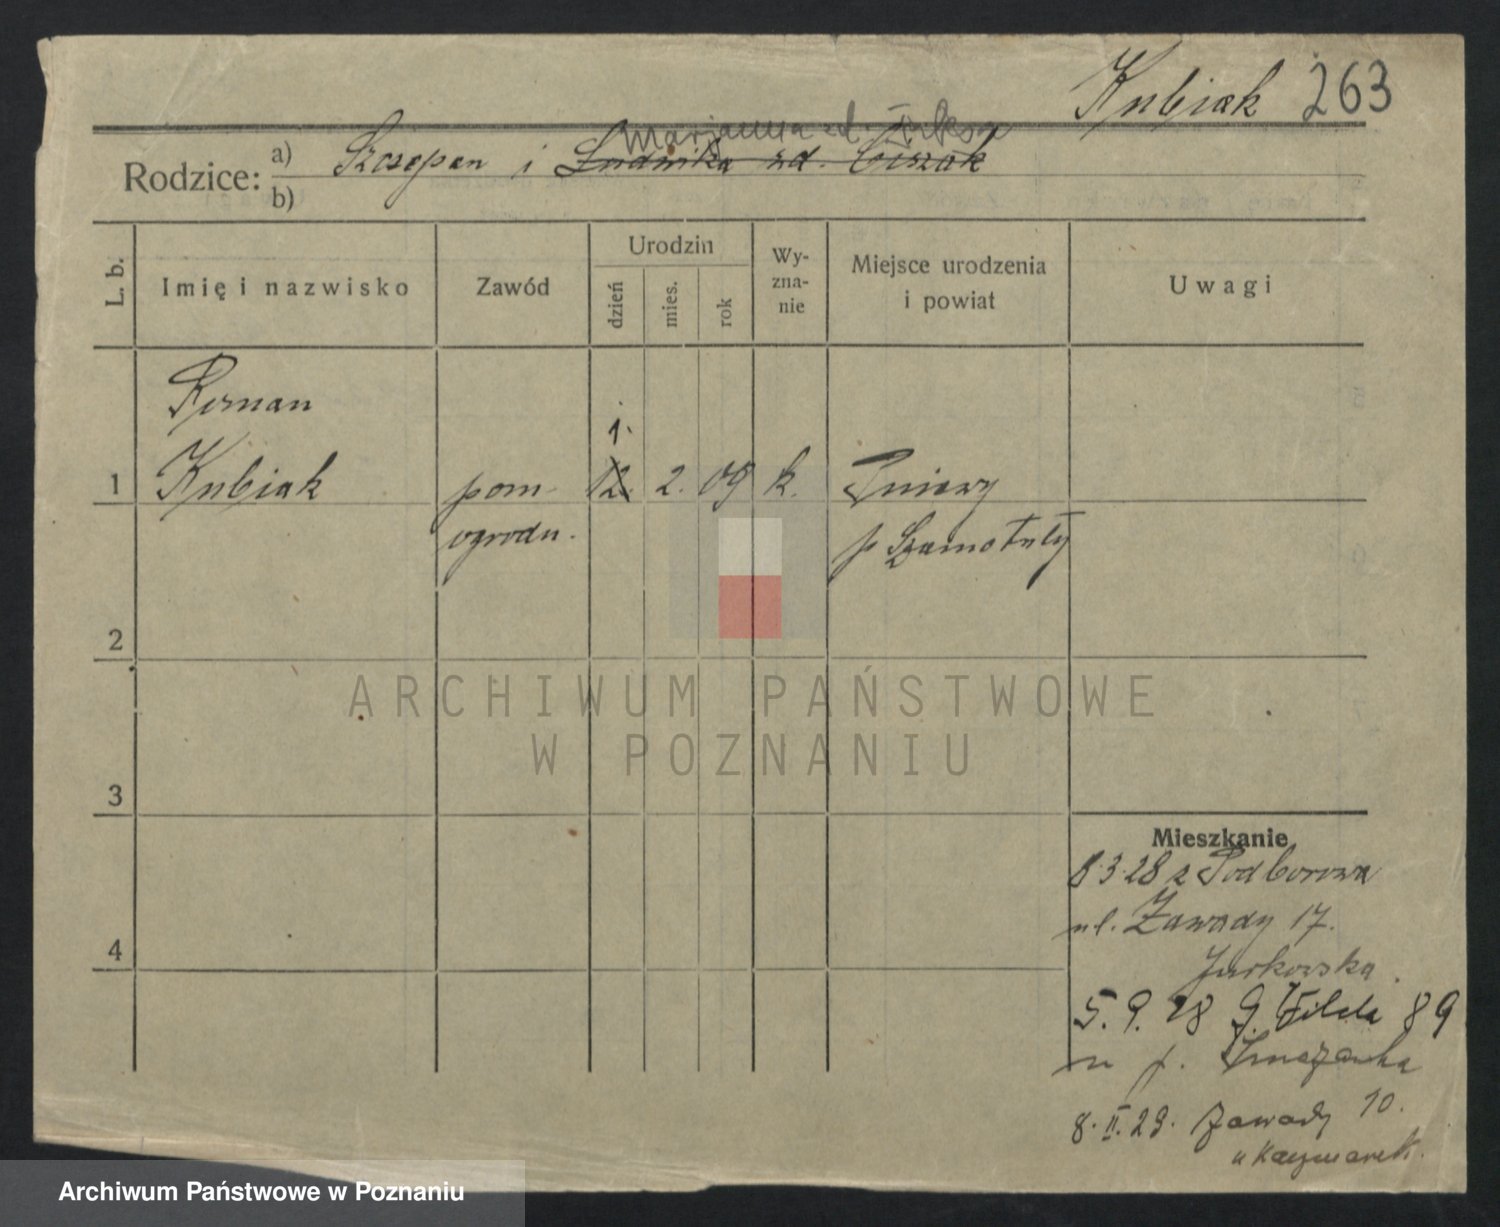 Kubiak 263
Marjanna zd.
Rodzice: a) Szczepan i Ludwika zd. Ciszak
b)
L. b.
Imię i nazwisko
Zawód
Urodzin
dzień
mies.
rok
Wy-
zna-
nie
Miejsce urodzenia
i powiat
Uwagi
Roman
1.
1 Kubiak pom 12. 2. 09 k. Pniewy
ogrodn. p Szamotuły
2
ARCHIWUM PAŃSTWOWE
W POZNANIU
3
Mieszkanie
8.3.28 z Podborowa
ul. Zawady 17.
4
Jurkowska.
5.9.28 G. Wilda 89
u p.
8.II.29. Zawady 10.
u Kaczmarek.
Archiwum Państwowe w Poznaniu